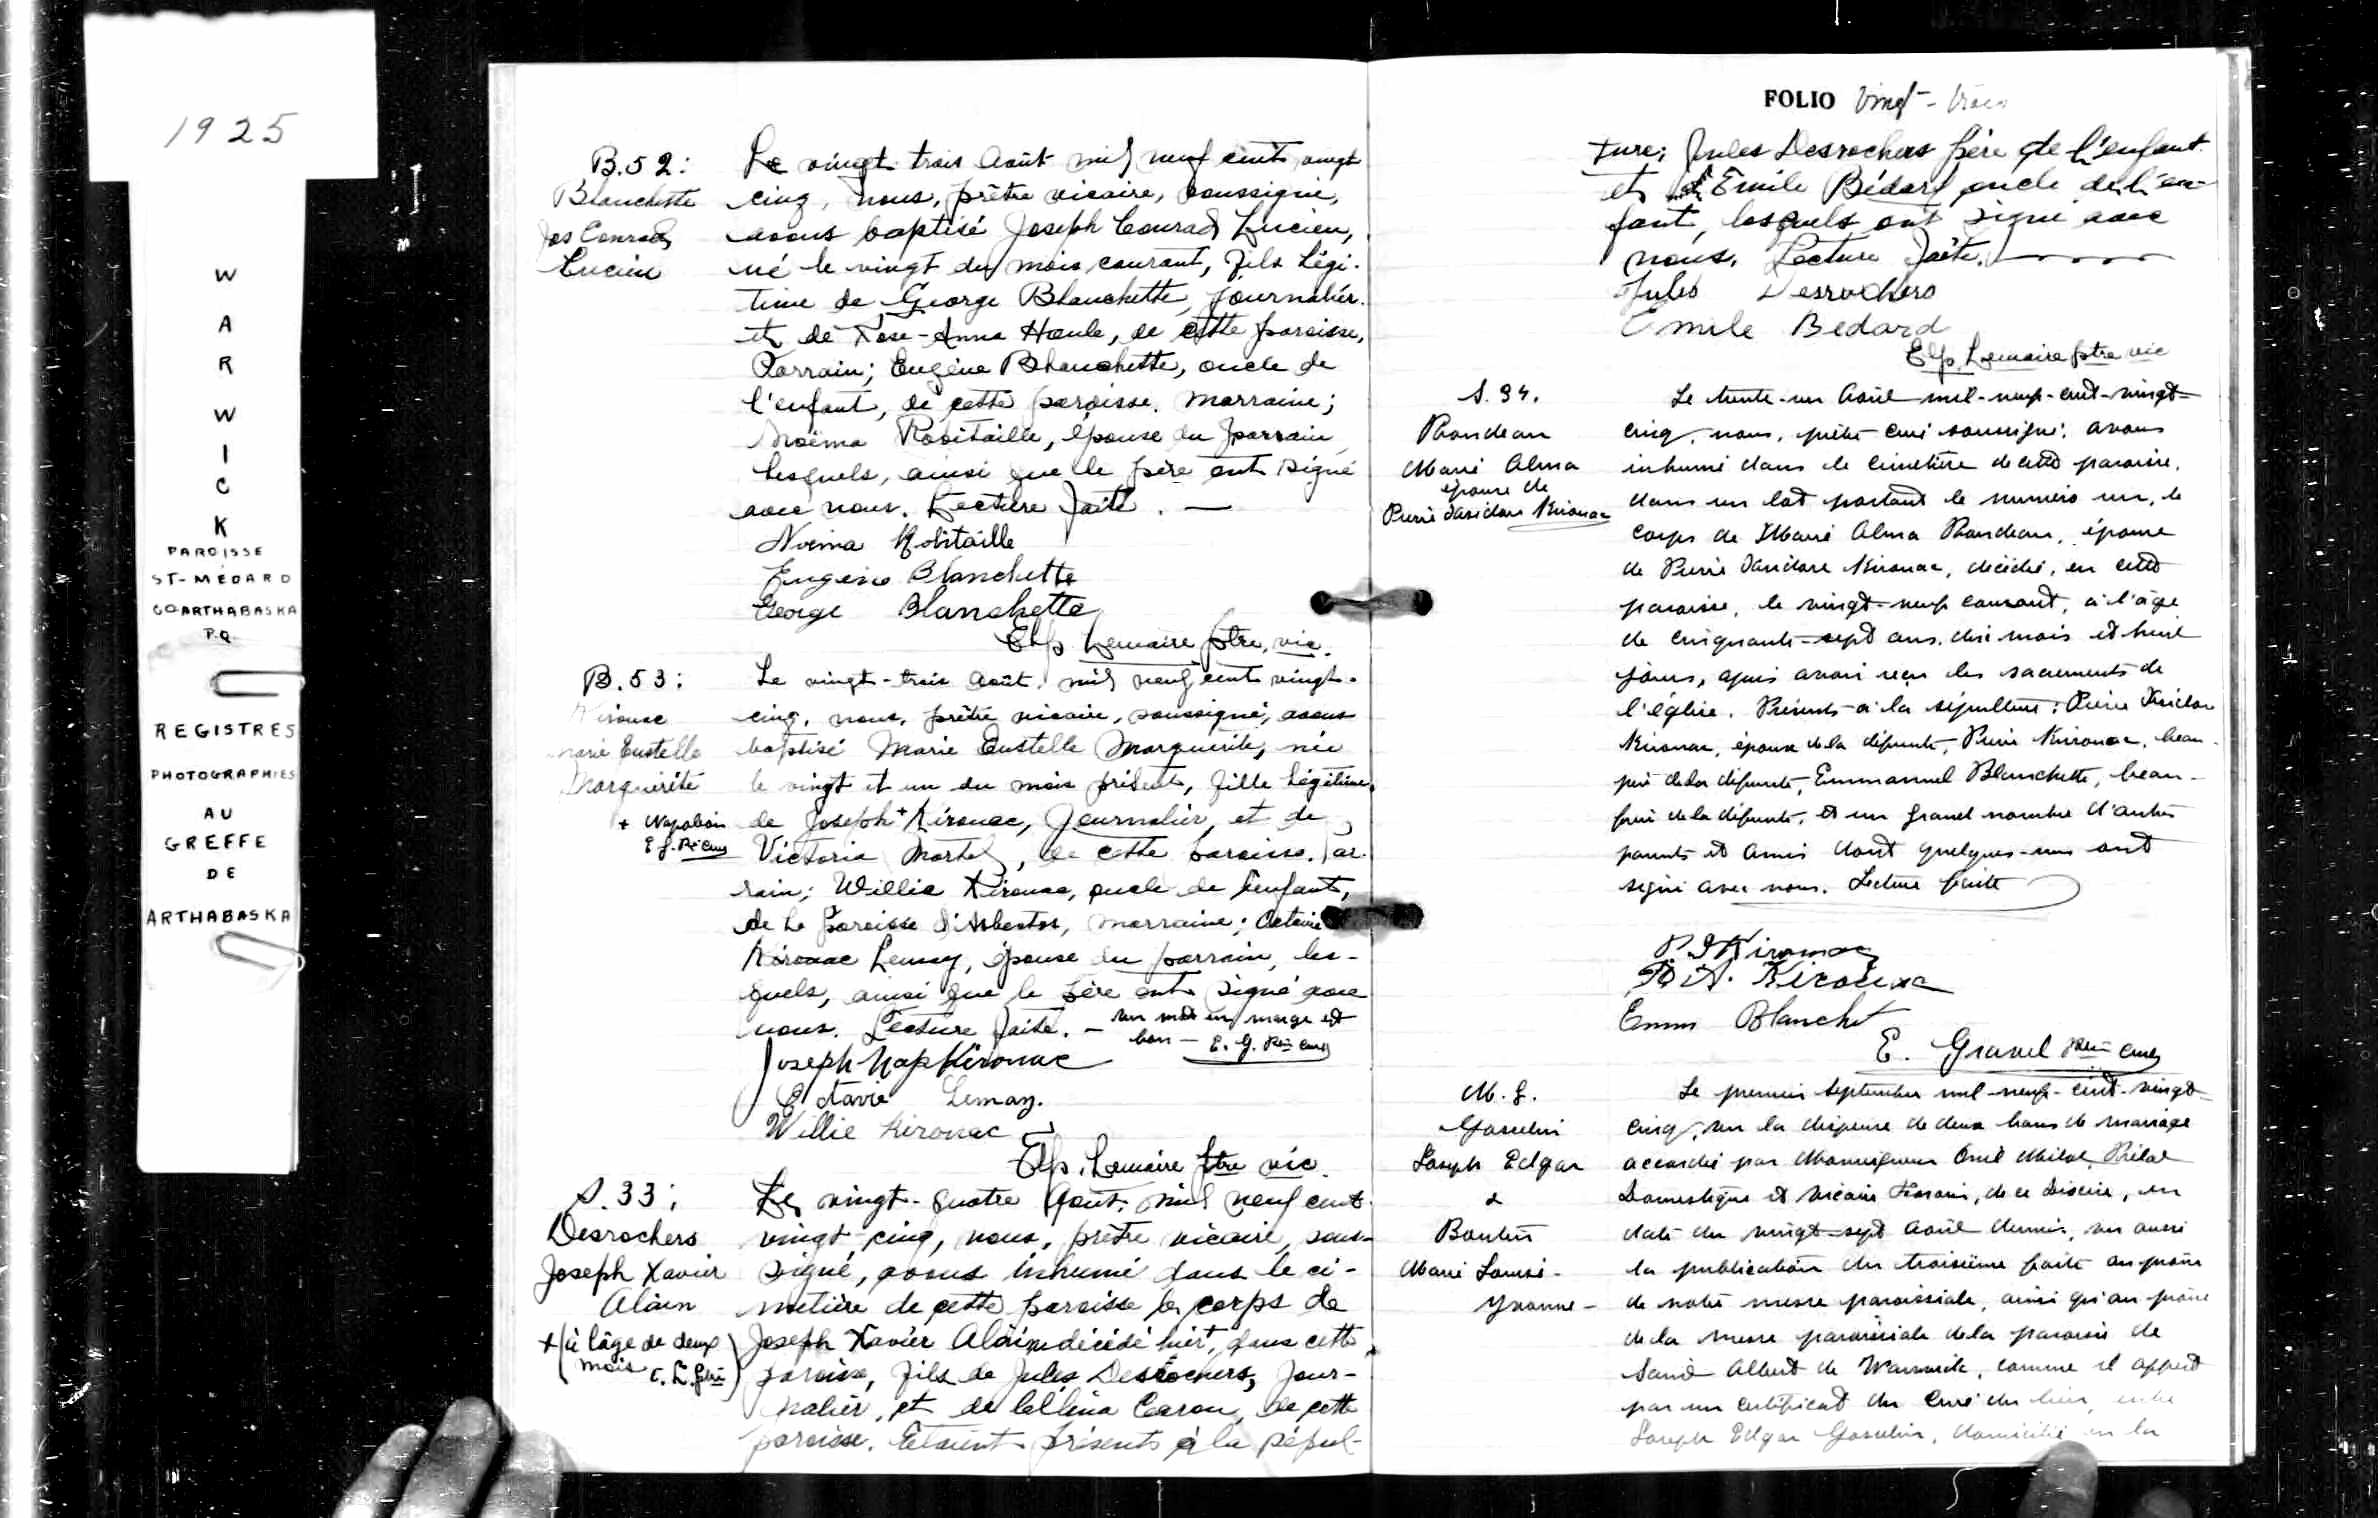 1925
W
A
R
W
I
C
K
PAROISSE
ST-MÉDARD
CO-ARTHABASKA
P.Q.
REGISTRES
PHOTOGRAPHIES
AU
GREFFE
DE
ARTHABASKA
B.52:
Blanchette
Jos Conrad
Lucien
Le vingt trois Août mil neuf cent vingt
cinq, nous, prêtre vicaire, soussigné,
avons baptisé Joseph Conrad Lucien,
né le vingt du mois courant, fils légi-
time de George Blanchette, journalier
et de Rose-Anna Houle, de cette paroisse,
Parrain; Eugène Blanchette, oncle de
l'enfant, de cette paroisse. Marraine;
Noëma Robitaille, épouse du parrain
lesquels, ainsi que le père ont signé
avec nous. Lecture faite. —
Noema Robitaille
Eugène Blanchette
George Blanchette
Elp. Lemaire ptre, vic.
B.53:
Kirouac
Marie Eustelle
Marguerite
+ Napoléon
E. G. Ptre Curé
Le vingt-trois Août, mil neuf cent vingt-
cinq, nous, prêtre vicaire, soussigné, avons
baptisé Marie Eustelle Marguerite, née
le vingt et un du mois présent, fille légitime
de Joseph + Kirouac, Journalier, et de
Victoria Martel, de cette paroisse. Par-
rain; Willie Kirouac, oncle de l'enfant,
de la paroisse d'Asbestos, marraine; Octavie
Kirouac Lemay, épouse du parrain, les-
quels, ainsi que le père ont signé avec
nous. Lecture faite. — un mot en marge est
bon — E. G. Ptre Curé
Joseph Nap Kirouac
Octavie Lemay.
Willie Kirouac
Elp. Lemaire ptre vic.
S.33:
Desrochers
Joseph Xavier
Alain
+ (à l'âge de deux
mois E. L. ptre)
Le vingt-quatre Août, mil neuf cent
vingt-cinq, nous, prêtre vicaire, sous-
signé, avons inhumé dans le ci-
metière de cette paroisse le corps de
Joseph Xavier Alain décédé hier +, dans cette
paroisse, fils de Jules Desrochers, Jour-
nalier, et de Caron, de cette
paroisse. Étaient présents à la sépul-
FOLIO Vingt-trois
ture; Jules Desrochers père de l'enfant
et Émile Bédard oncle de l'en-
fant, lesquels ont signé avec
nous. Lecture faite.
Jules Desrochers
Emile Bedard
Elp. Lemaire ptre vic
S. 34.
Rondeau
Marie Alma
épouse de
Pierre Isidore Kirouac
Le trente-un Août mil-neuf-cent-vingt-
cinq, nous, prêtre curé soussigné, avons
inhumé dans le cimetière de cette paroisse,
dans un lot portant le numéro un, le
corps de Marie Alma Rondeau, épouse
de Pierre Isidore Kirouac, décédée, en cette
paroisse, le vingt-neuf courant, à l'âge
de cinquante-sept ans, dix mois et huit
jours, après avoir reçu les sacrements de
l'église. Présents à la sépulture: Pierre Isidore
Kirouac, époux de la défunte, Pierre Kirouac, beau-
père de la défunte, Emmanuel Blanchette, beau-
frère de la défunte, et un grand nombre d'autres
parents et amis dont quelques-uns ont
signé avec nous. Lecture faite
P. I. Kirouac
A. Kirouac
Emm Blanchet
E. Gravel Ptre Curé
M. G.
Gosselin
Joseph Edgar
&
Boutin
Marie Louise-
Yvonne-
Le premier septembre mil-neuf-cent-vingt-
cinq, vu la dispense de deux bans de mariage
accordée par Monseigneur Milot, Prélat
Domestique et vicaire de ce diocèse, en
date du vingt-sept août dernier, vu aussi
la publication du troisième faite au prône
de notre messe paroissiale, ainsi qu'au prône
de la messe paroissiale de la paroisse de
Saint Albert de Warwick, comme il appert
par un certificat du Curé du lieu, entre
Joseph Edgar Gosselin, domicilié en la